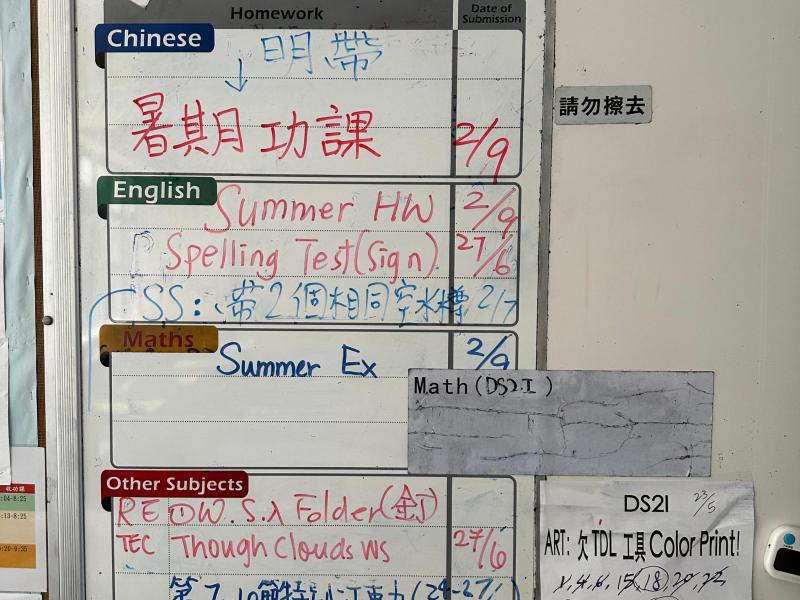 Homework
Date of Submission
Chinese
明帶
↓
暑期功課 2/9
請勿擦去
English
Summer HW 2/9
Spelling Test(Sign) 27/6
SS: 帶2個相同空水樽 2/7
Maths
Summer Ex 2/9
Math(DS2I)
Other Subjects
RE ①W.S.入 Folder(釘)
TEC Though Clouds WS 27/6
收功課
:04-8:25
:13-8:25
:20-9:35
DS2I 23/5
ART: 欠 TDL 工具 Color Print!